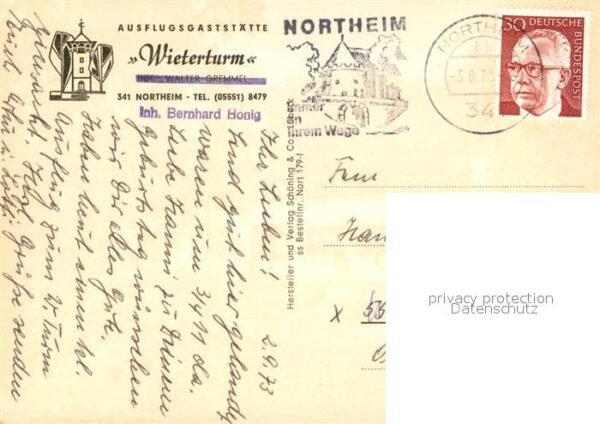 AUSFLUGSGASTSTÄTTE
»Wieterturm«
INH. WALTER GREMMEL
341 NORTHEIM - TEL. (05551) 8479
Inh. Bernhard Honig
NORTHEIM
Immer
an
Ihrem Wege
NORTHEIM
-3.9.73
34
30 DEUTSCHE
BUNDESPOST
Hersteller und Verlag Schöning & Co
ss Bestellnr. Nort 179-1
2.9.73
Ihr Lieben!
Sind gut hier gelandet
waren um 3/4 11 da.
Liebe Hanni zu Deinem
Geburtstag wünschen
wir Dir alles Gute.
Haben heut einen kl.
Ausflug zum W. Turm
gemacht. Grüße senden
Frau
privacy protection
Datenschutz